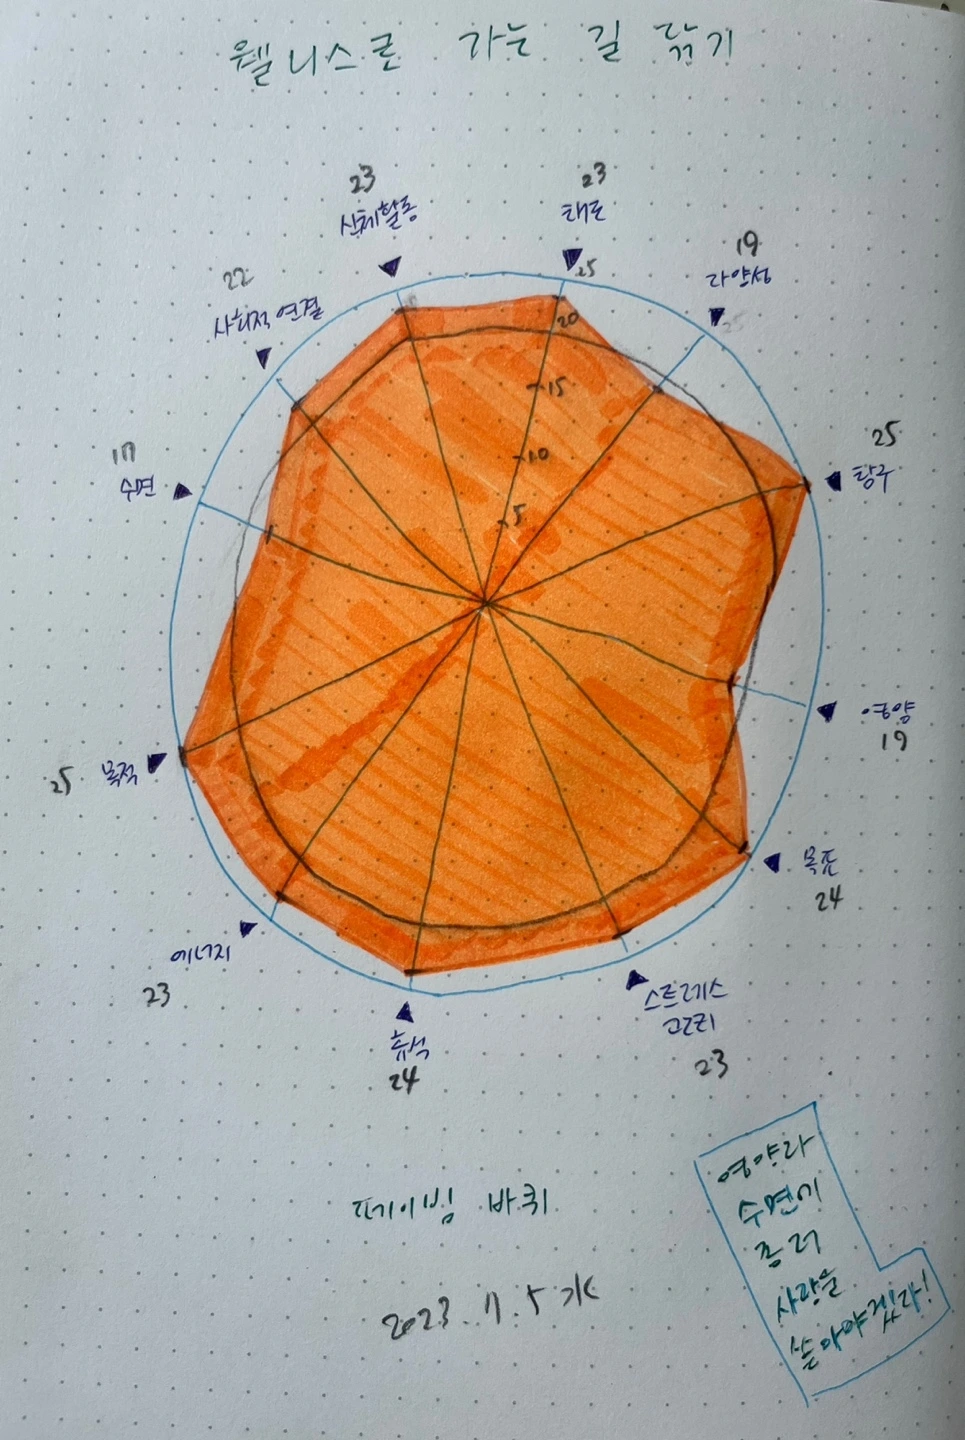 웰니스로 가는 길 닦기
23
신체활동
23
태도
19
다양성
22
사회적 연결
25
20
15
10
5
25
탐구
17
수면
영양
19
25
목적
목표
24
에너지
23
휴식
24
스트레스
관리
23
페이빙 바퀴
2023. 7. 5 水
영양과
수면에
좀 더
사랑을
쏟아야겠다!